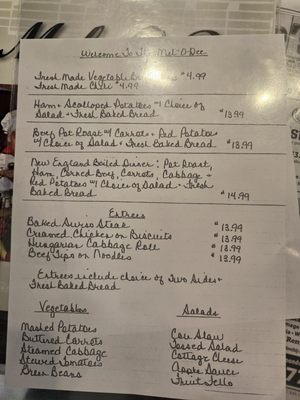 Welcome To The Mel-O-Dee
Fresh Made Vegetable $4.99
Fresh Made Chili $4.99
Ham & Scalloped Potatoes w/ 1 Choice of
Salad & Fresh Baked Bread $13.99
Beef Pot Roast w/ Carrots & Red Potatoes
w/ Choice of Salad & Fresh Baked Bread $13.99
New England Boiled Dinner: Pot Roast,
Ham, Corned Beef, Carrots, Cabbage &
Red Potatoes w/ 1 Choice of Salad & Fresh
Baked Bread $14.99
Entrees
Baked Swiss Steak $13.99
Creamed Chicken on Biscuits $13.99
Hungarian Cabbage Roll $13.99
Beef Tips on Noodles $13.99
Entrees include choice of Two Sides &
Fresh Baked Bread
Vegetables
Salads
Mashed Potatoes
Buttered Carrots
Steamed Cabbage
Stewed Tomatoes
Green Beans
Cole Slaw
Tossed Salad
Cottage Cheese
Apple Sauce
Fruit Jello